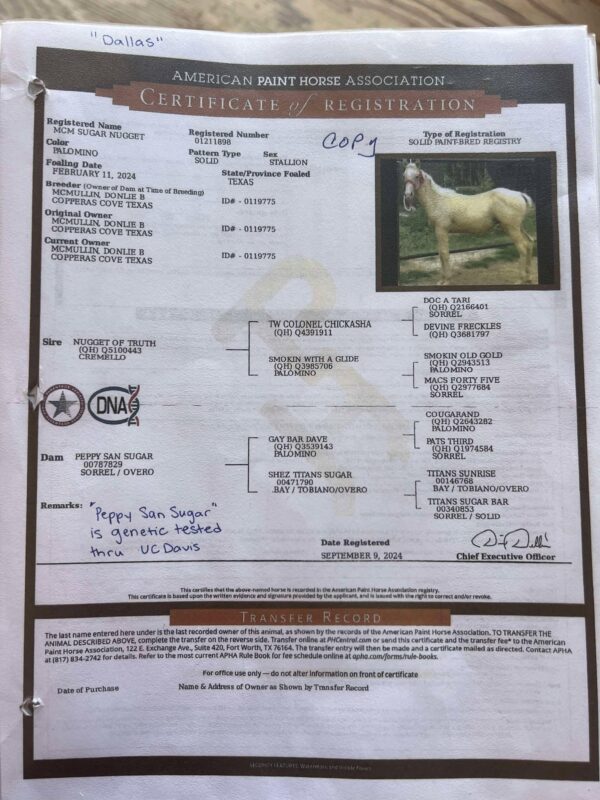 "Dallas"
AMERICAN PAINT HORSE ASSOCIATION
CERTIFICATE of REGISTRATION
Registered Name
MCM SUGAR NUGGET
Registered Number
01211898
COPY
Type of Registration
SOLID PAINT-BRED REGISTRY
Color
PALOMINO
Pattern Type
SOLID
Sex
STALLION
Foaling Date
FEBRUARY 11, 2024
State/Province Foaled
TEXAS
Breeder (Owner of Dam at Time of Breeding)
MCMULLIN, DONLIE B
COPPERAS COVE TEXAS
ID# - 0119775
Original Owner
MCMULLIN, DONLIE B
COPPERAS COVE TEXAS
ID# - 0119775
Current Owner
MCMULLIN, DONLIE B
COPPERAS COVE TEXAS
ID# - 0119775
Sire NUGGET OF TRUTH
(QH) Q5100443
CREMELLO
TW COLONEL CHICKASHA
(QH) Q4391911
DOC A TARI
(QH) Q2166401
SORREL
DEVINE FRECKLES
(QH) Q3681797
SMOKIN WITH A GLIDE
(QH) Q3985706
PALOMINO
SMOKIN OLD GOLD
(QH) Q2943513
PALOMINO
MACS FORTY FIVE
(QH) Q2977684
SORREL
DNA
Dam PEPPY SAN SUGAR
00787829
SORREL / OVERO
GAY BAR DAVE
(QH) Q3539143
PALOMINO
COUGARAND
(QH) Q2643282
PALOMINO
PATS THIRD
(QH) Q1974584
SORREL
SHEZ TITANS SUGAR
00471790
BAY / TOBIANO/OVERO
TITANS SUNRISE
00146768
BAY / TOBIANO/OVERO
TITANS SUGAR BAR
00340853
SORREL / SOLID
Remarks: "Peppy San Sugar"
is genetic tested
thru UC Davis
Date Registered
SEPTEMBER 9, 2024
Chief Executive Officer
This certifies that the above-named horse is recorded in the American Paint Horse Association registry.
This certificate is based upon the written evidence and signature provided by the applicant, and is issued with the right to correct and/or revoke.
TRANSFER RECORD
The last name entered here under is the last recorded owner of this animal, as shown by the records of the American Paint Horse Association. TO TRANSFER THE
ANIMAL DESCRIBED ABOVE, complete the transfer on the reverse side. Transfer online at PHCentral.com or send this certificate and the transfer fee* to the American
Paint Horse Association, 122 E. Exchange Ave., Suite 420, Fort Worth, TX 76164. The transfer entry will then be made and a certificate mailed as directed. Contact APHA
at (817) 834-2742 for details. Refer to the most current APHA Rule Book for fee schedule online at apha.com/forms/rule-books.
For office use only — do not alter information on front of certificate
Date of Purchase
Name & Address of Owner as Shown by Transfer Record
SECURITY FEATURES: Watermark and Visible Fibers